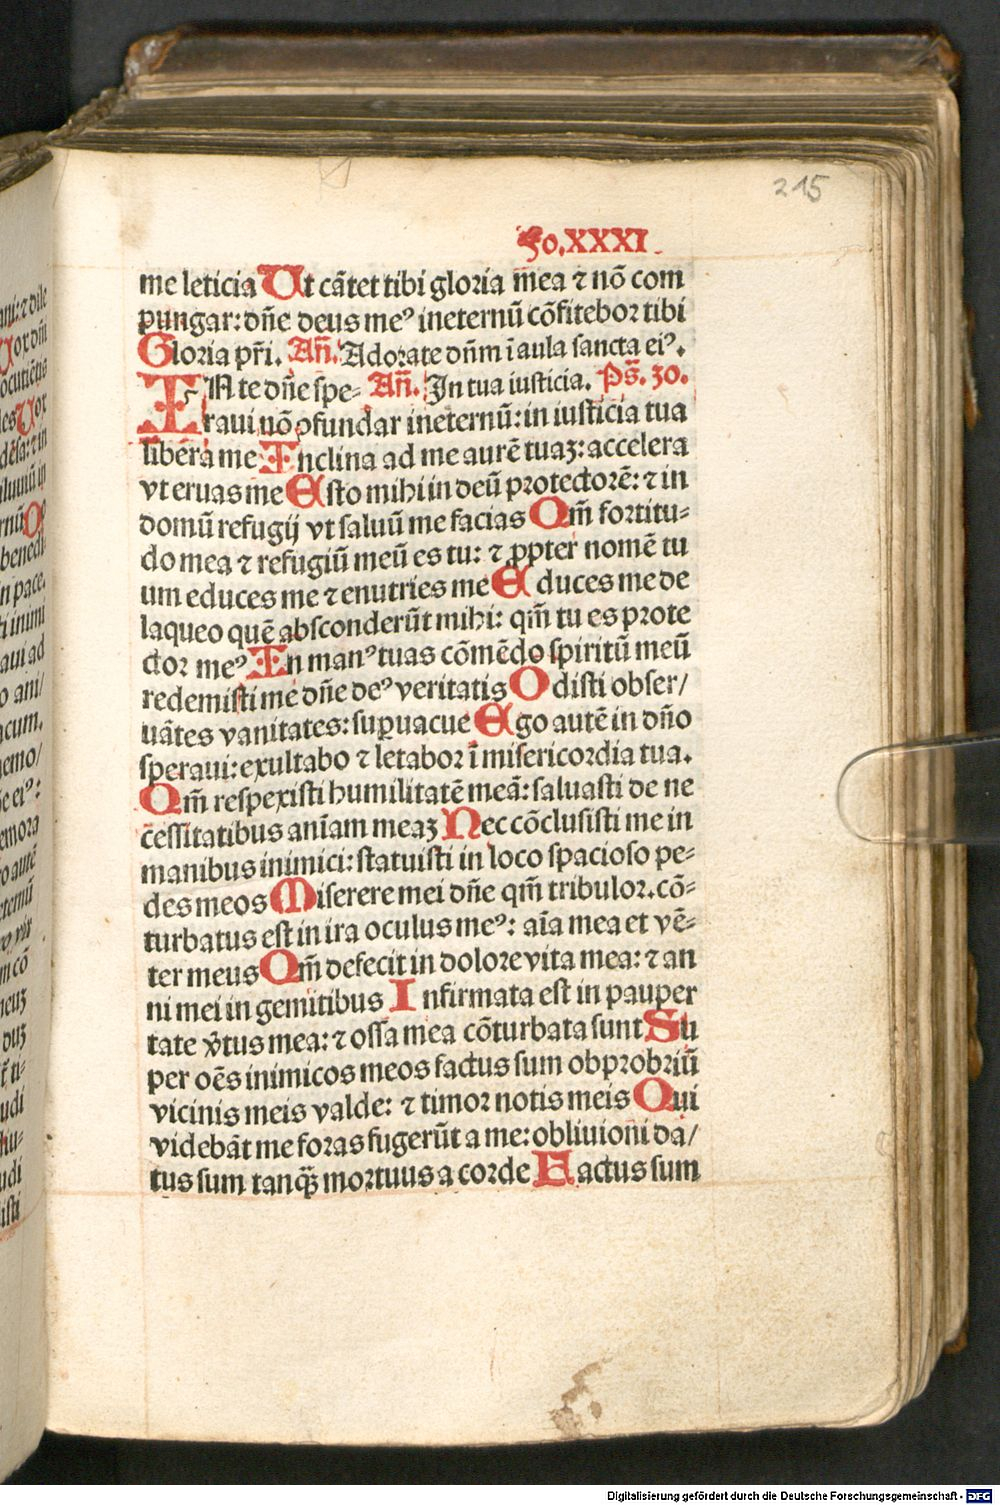 215
Fo. XXXI
me leticia Ut cãtet tibi gloria mea ⁊ nõ com
pungar: dñe deus meꝰ ineternũ cõfitebor tibi
Gloria pr̃i. Añ. Adorate dñm ĩ aula sancta eiꝰ.
IN te dñe spe⸗ Añ. In tua iusticia. Ps̃. 30.
raui nõ ꝓfundar ineternũ: in iusticia tua
libera me Inclina ad me aurẽ tuaꝫ: accelera
vt eruas me Esto mihi in deũ protectorẽ: ⁊ in
domũ refugij vt saluũ me facias Qm̃ fortitu⸗
do mea ⁊ refugiũ meũ es tu: ⁊ ꝓpter nomẽ tu
um educes me ⁊ enutries me Educes me de
laqueo quẽ absconderũt mihi: qm̃ tu es prote
ctor meꝰ In manꝰ tuas cõmẽdo spiritũ meũ
redemisti me dñe deꝰ veritatis Odisti obser/
uãtes vanitates: suꝑuacue Ego autẽ in dño
speraui: exultabo ⁊ letabor ĩ misericordia tua.
Qm̃ respexisti humilitatẽ meã: saluasti de ne
cessitatibus anĩam meaꝫ Nec cõclusisti me in
manibus inimici: statuisti in loco spacioso pe⸗
des meos Miserere mei dñe qm̃ tribulor. cõ⸗
turbatus est in ira oculus meꝰ: aĩa mea et vẽ⸗
ter meus Qm̃ defecit in dolore vita mea: ⁊ an
ni mei in gemitibus Infirmata est in pauper
tate v̾tus mea: ⁊ ossa mea cõturbata sunt Su
per oẽs inimicos meos factus sum obprobriũ
vicinis meis valde: ⁊ timor notis meis Qui
videbãt me foras fugerũt a me: obliuioni da/
tus sum tanqꝫ̃ mortuus a corde Factus sum
Digitalisierung gefördert durch die Deutsche Forschungsgemeinschaft - DFG